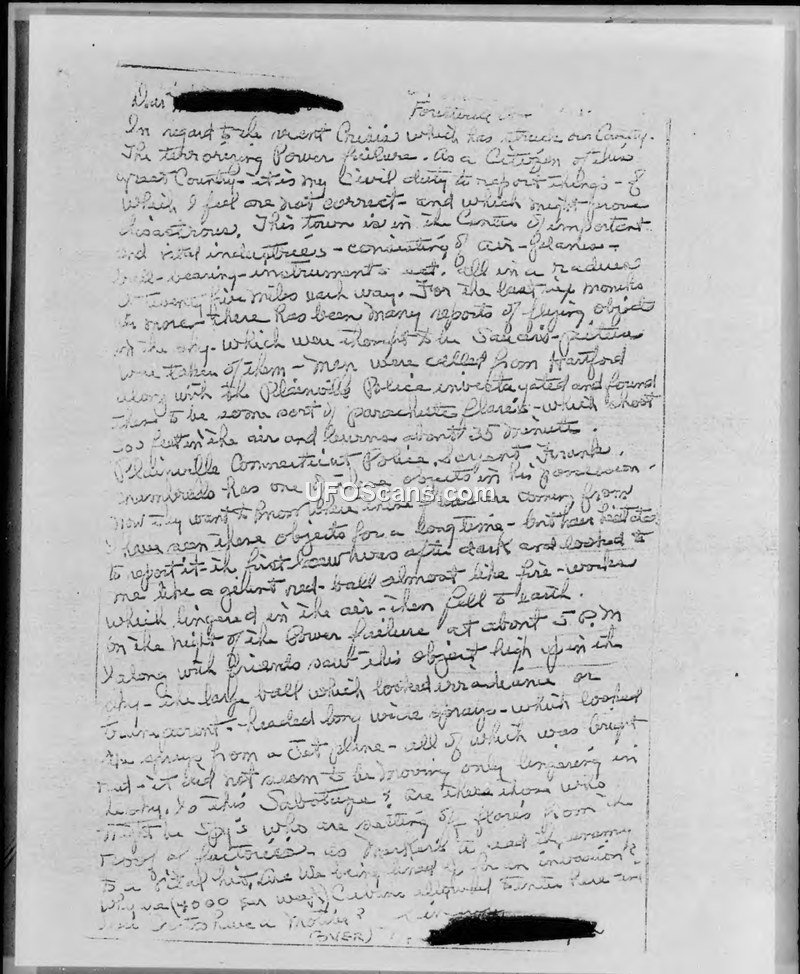 Dear
Forestville
In regard to the recent Crisis which has struck our County.
The terrorizing Power failure. As a Citizen of this
great Country - it is my Civil duty to report things - of
which I feel are not correct - and which might prove
disastrous. This town is in the Center of important
and vital industries - consisting of air-planes -
ball-bearing - instruments ect. all in a radius
of twenty five miles each way. For the last six months
or more - there has been many reports of flying objects
in the sky - which were thought to be Saucers - pictures
were taken of them - men were called from Hartford
along with the Plainville Police investagated and found
them to be some sort of parachute flares - which shoot
feet in the air and burns about 35 minutes.
Plainville Connecticut Police, Frank
has one of these objects in his possesion.
Now they want to know where these are coming from
I have seen these objects for a long time - but have
to report it - the first I saw was after dark and looked to
me like a gient red-ball almost like fire-works
which lingered in the air - then fell to earth.
On the night of the Power failure at about 5 P.M
I along with friends saw this object high up in the
sky - the large ball which looked or
- headed long wide sprays - which looked
like sprays from a Jet plane - all of which was bright
red - it did not seem to be moving only lingering in
the sky. Is this Sabotage? are there those who
might be Spy's who are setting of flares from the
roof of factories - as Markers to enemy
to a Vital hit, are we being used for an invasion?
why are (4000 per week) Cubans allowed to enter here
have a Motive?
(OVER)
UFOScans.com